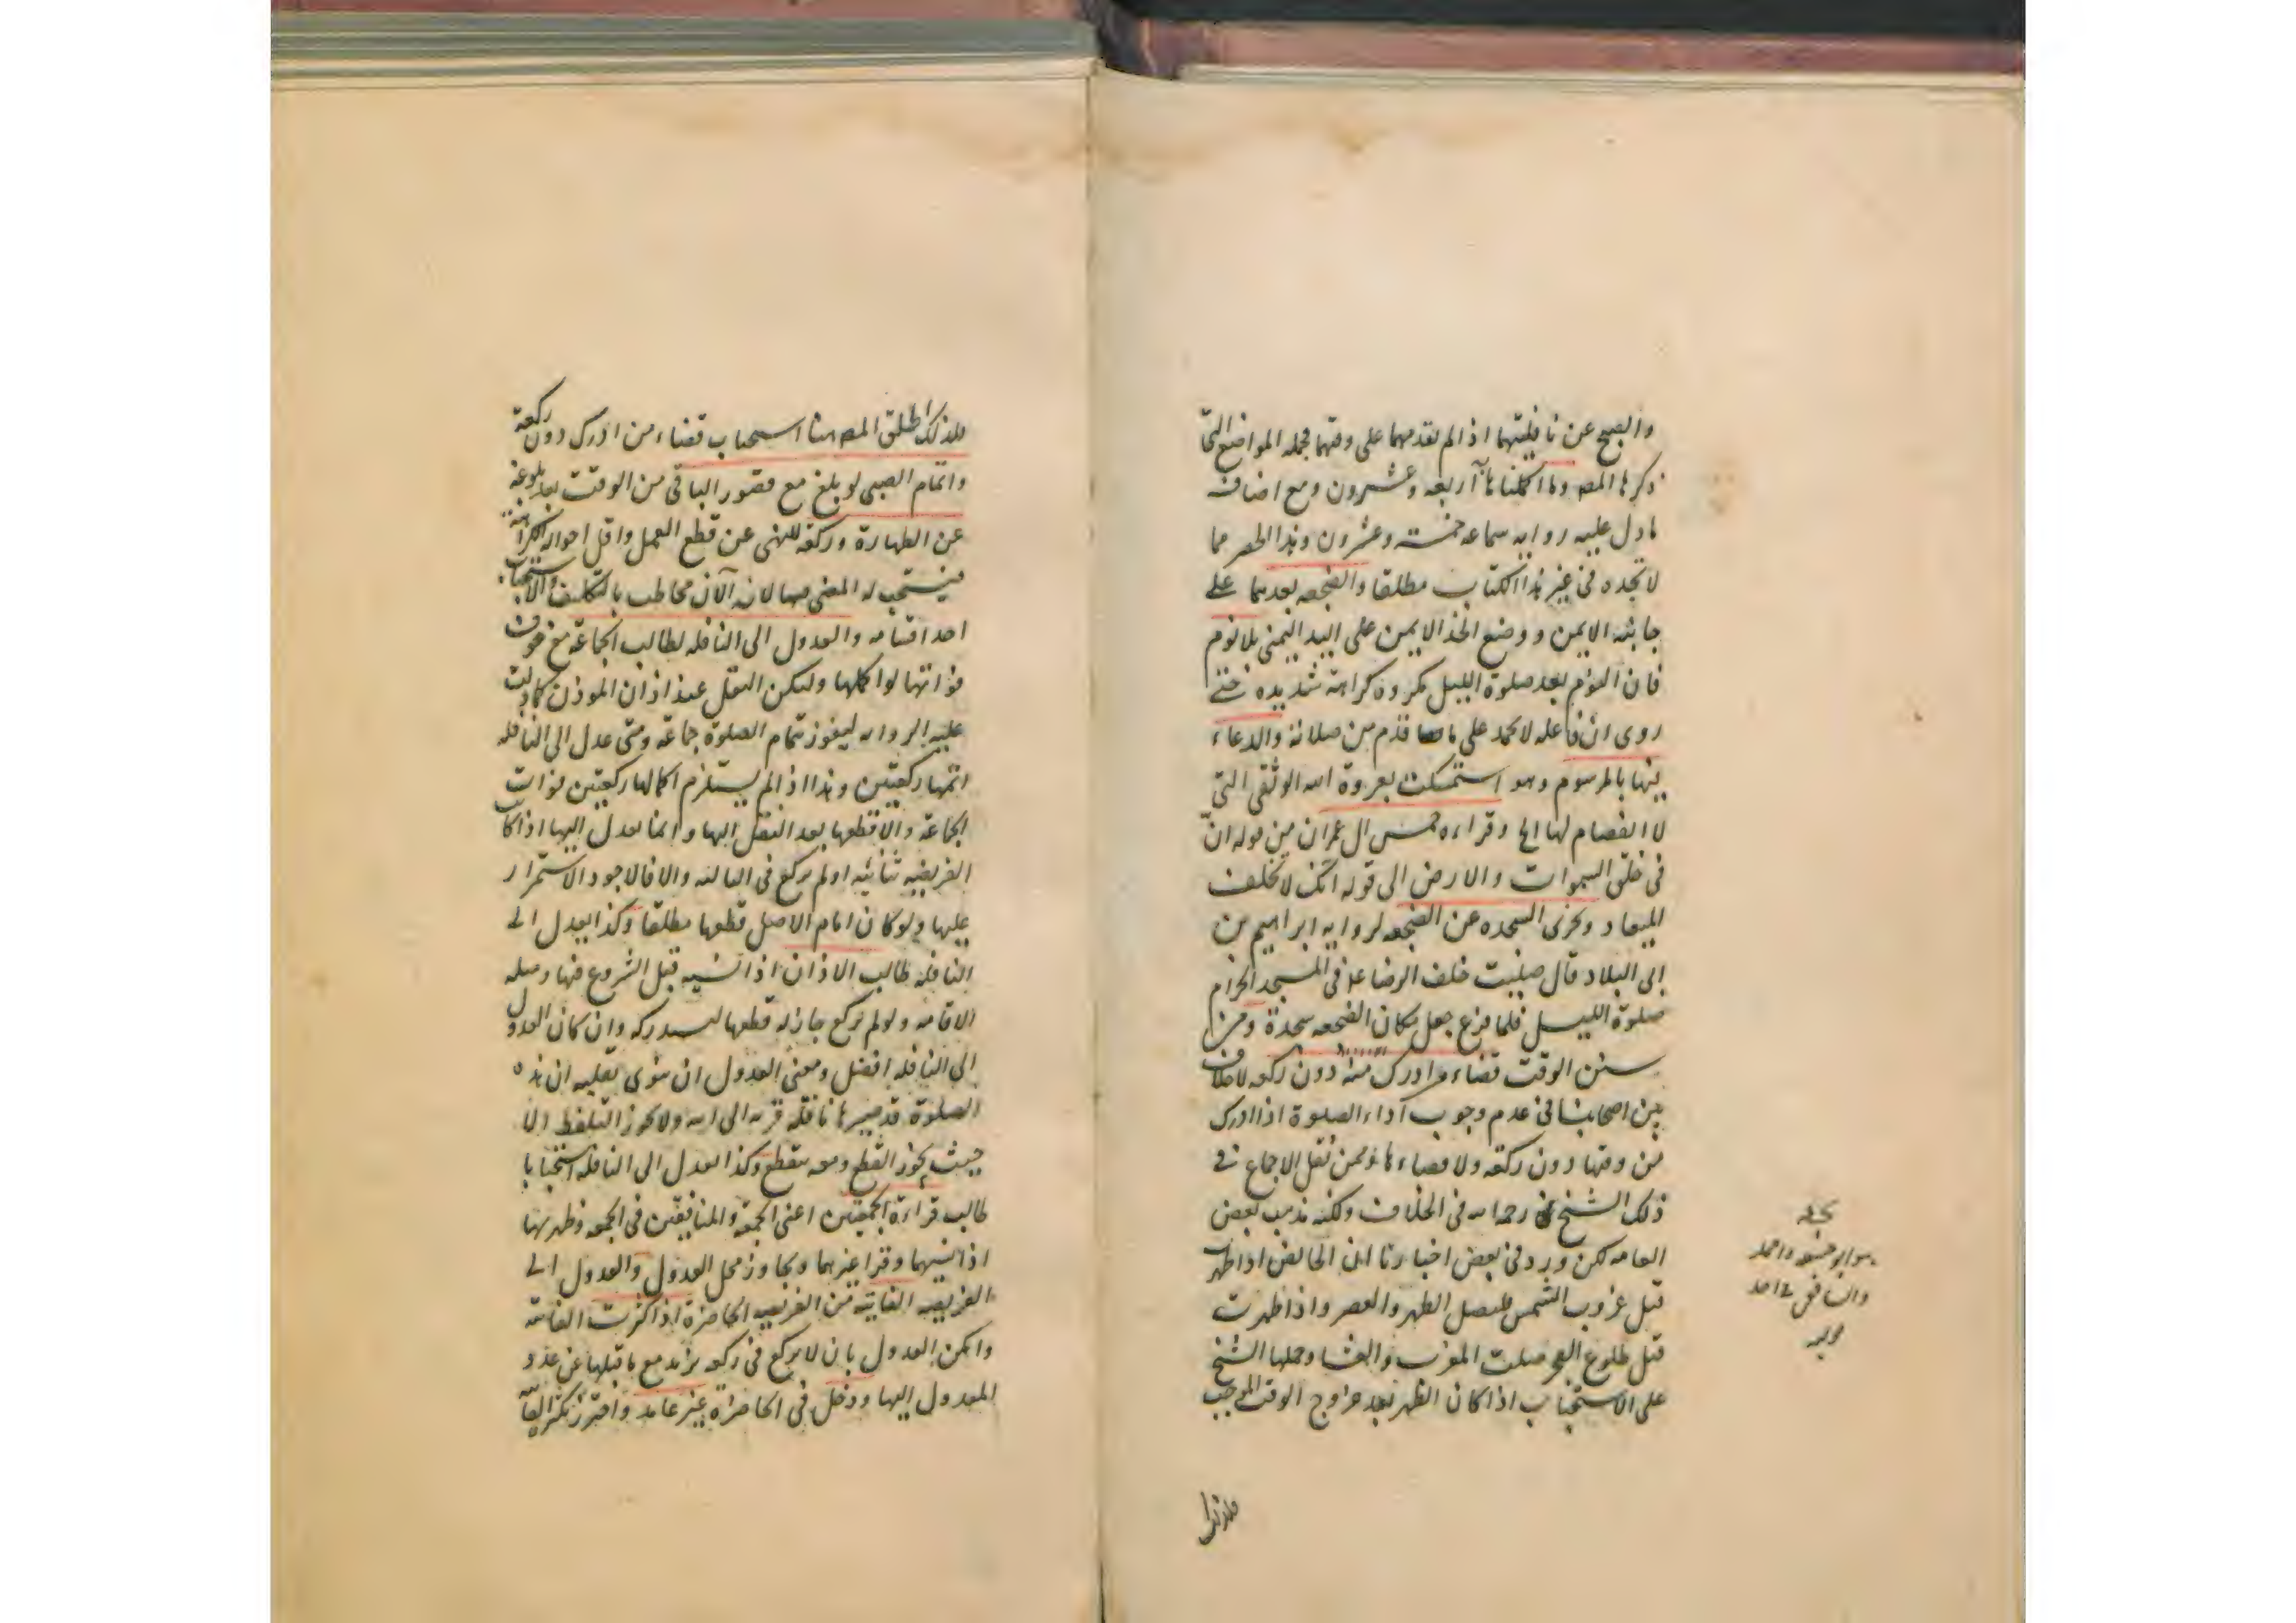 والصبح عن نافلتيهما اذا لم يقدمهما على وقتهما فجمله المواضع التي
ذكرها المصـ وما اكملناها أربعه وعشرون ومع اضافه
ما دل عليه روايه سماعه خمسـة وعشرون وهذا الحصر مما
لا تجده في غير هذا الكتاب مطلقا والضجعه بعدهما على
جانبه الايمن ووضع الخد الايمن على اليد اليمنى بلا نوم
فان النوم بعد صلوة الليل مكروه كراهة شديده حتى
روى ان فاعله لا يحمد على ما قدم من صلاته والدعاء
فيها بالمرسوم وهو استمسكت بعروة الله الوثقى التي
لا انفصام لها الخ وقراءه خمس ال عمران من قوله ان
في خلق السموات والارض الى قوله انك لا تخلف
الميعاد وتجزى السجده عن الضجعه لروايه ابراهيم بن
ابى البلاد قال صليت خلف الرضا ع في المسجد الحرام
صلوة الليل فلما فرغ جعل مكان الضجعه سجدة ومن
سنن الوقت قضاء من ادرك منه دون ركعه لا خلاف
بين اصحابنا في عدم وجوب آداء الصلوة اذا ادرك
من وقتها دون ركعة ولا قضاءها وممن نقل الاجماع في
ذلك الشيخ رحمه الله في الخلاف ولكنه مذهب بعض
العامه لكن ورد في بعض اخبارنا ان الحائض اذا طهرت
قبل غروب الشمس فلتصل الظهر والعصر واذا طهرت
قبل طلوع الفجر صلت المغرب والعشا وحملها الشيخ
على الاستحباب اذا كان الطهر بعد خروج الوقت الموجب
فلذلك
هو ابو حنيفه واحمد
والشافعي في احد
قوليه
فلذلك اطلق المصـ هنا استحباب قضاء من ادرك دون ركعة
واتمام الصبى لو بلغ مع قصور الباقي من الوقت بعد بلوغه
عن الطهارة وركعه للنهى عن قطع العمل واقل احواله الكراهة
فيستحب له المضى فيها لانه الآن مخاطب بالتكليف والاستحباب
احد اقسامه والعدول الى النافله لطالب الجماعة مع خوف
فواتها لو اكملها وليكن النقل عند اذان الموذن كما دلت
عليه الروايه ليفوز بتمام الصلوة جماعة ومتى عدل الى النافله
اتمها ركعتين وهذا اذا لم يستلزم اكمالها ركعتين فوات
الجماعة والا قطعها بعد النقل اليها وانما يعدل اليها اذا كانت
الفريضه ثنائيه او لم يركع في الثالثه والا فالاجود الاستمرار
عليها ولو كان امام الاصل قطعها مطلقا وكذا يعدل الى
النافله طالب الاذان اذا نسيه قبل الشروع فيها ومثله
الاقامه ولو لم يركع جاز له قطعها ليستدركه وان كان العدول
الى النافله افضل ومعنى العدول ان ينوى بقلبه ان هذه
الصلوة قد صيرها نافلة قربه الى الله ولا يجوز التلفظ الا
حيث يجوز القطع ومعه يقطع وكذا يعدل الى النافله استحبابا
طالب قراءة الجمعتين اعني الجمعة والمنافقين في الجمعه وظهريها
اذا نسيهما وقرا غيرهما وتجاوز محل العدول والعدول الى
الفريضه الفائته من الفريضه الحاضرة اذا كثرت الفائته
وامكن العدول بان لا يركع في ركعه تزيد مع ما قبلها عن عدد
المعدول اليها ودخل في الحاضرة غير عامد واحترز بكثرة الفائتة